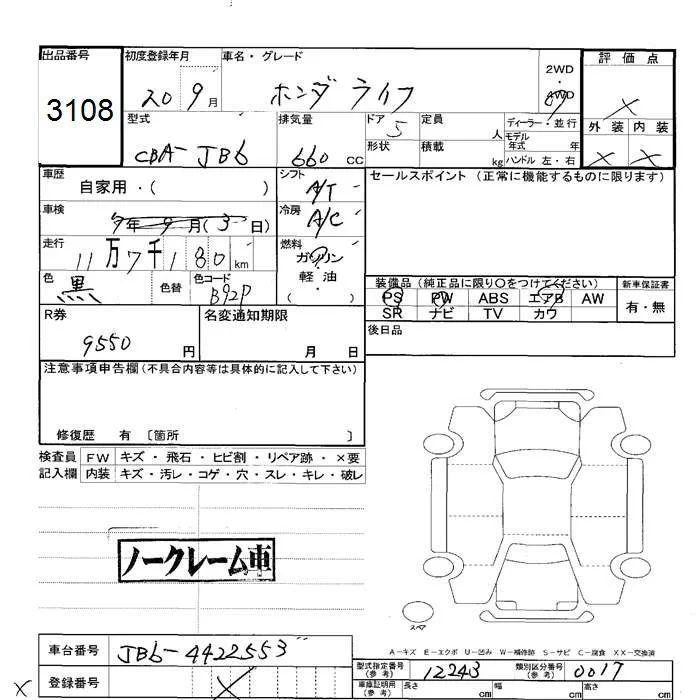 出品番号
3108
初度登録年月
20 9月
車名・グレード
ホンダ ライフ
2WD
4WD
評価点
X
外装 内装
X X
型式
CBA-JB6
排気量
660 cc
ドア 5
形状
定員 人
積載 kg
ディーラー・並行
モデル年式 年
ハンドル 左・右
車歴
自家用・( )
シフト A/T
セールスポイント(正常に機能するものに限ります)
車検
年 9月(3日)
冷房 A/C
走行
11万7千180km
燃料 ガソリン
軽油
・
( )
色
黒
色替
色コード
B92P
装備品(純正品に限り○をつけてください)
新車保証書
PS PW ABS エアB AW
有・無
SR ナビ TV カワ
R券
9550 円
名変通知期限
月 日
後日品
注意事項申告欄(不具合内容等は具体的に記入して下さい)
修復歴 有 〔箇所 〕
検査員 FW キズ・飛石・ヒビ割・リペア跡・×要
記入欄 内装 キズ・汚レ・コゲ・穴・スレ・キレ・破レ
ノークレーム車
スペア
A-キズ E-エクボ U-凹み W-補修跡 S-サビ C-腐食 XX-交換済
車台番号 JB6-4422553
型式指定番号(参考) 12243
類別区分番号(参考) 0017
X 登録番号 X
車庫証明用(参考) 長さ cm 幅 cm 高さ cm